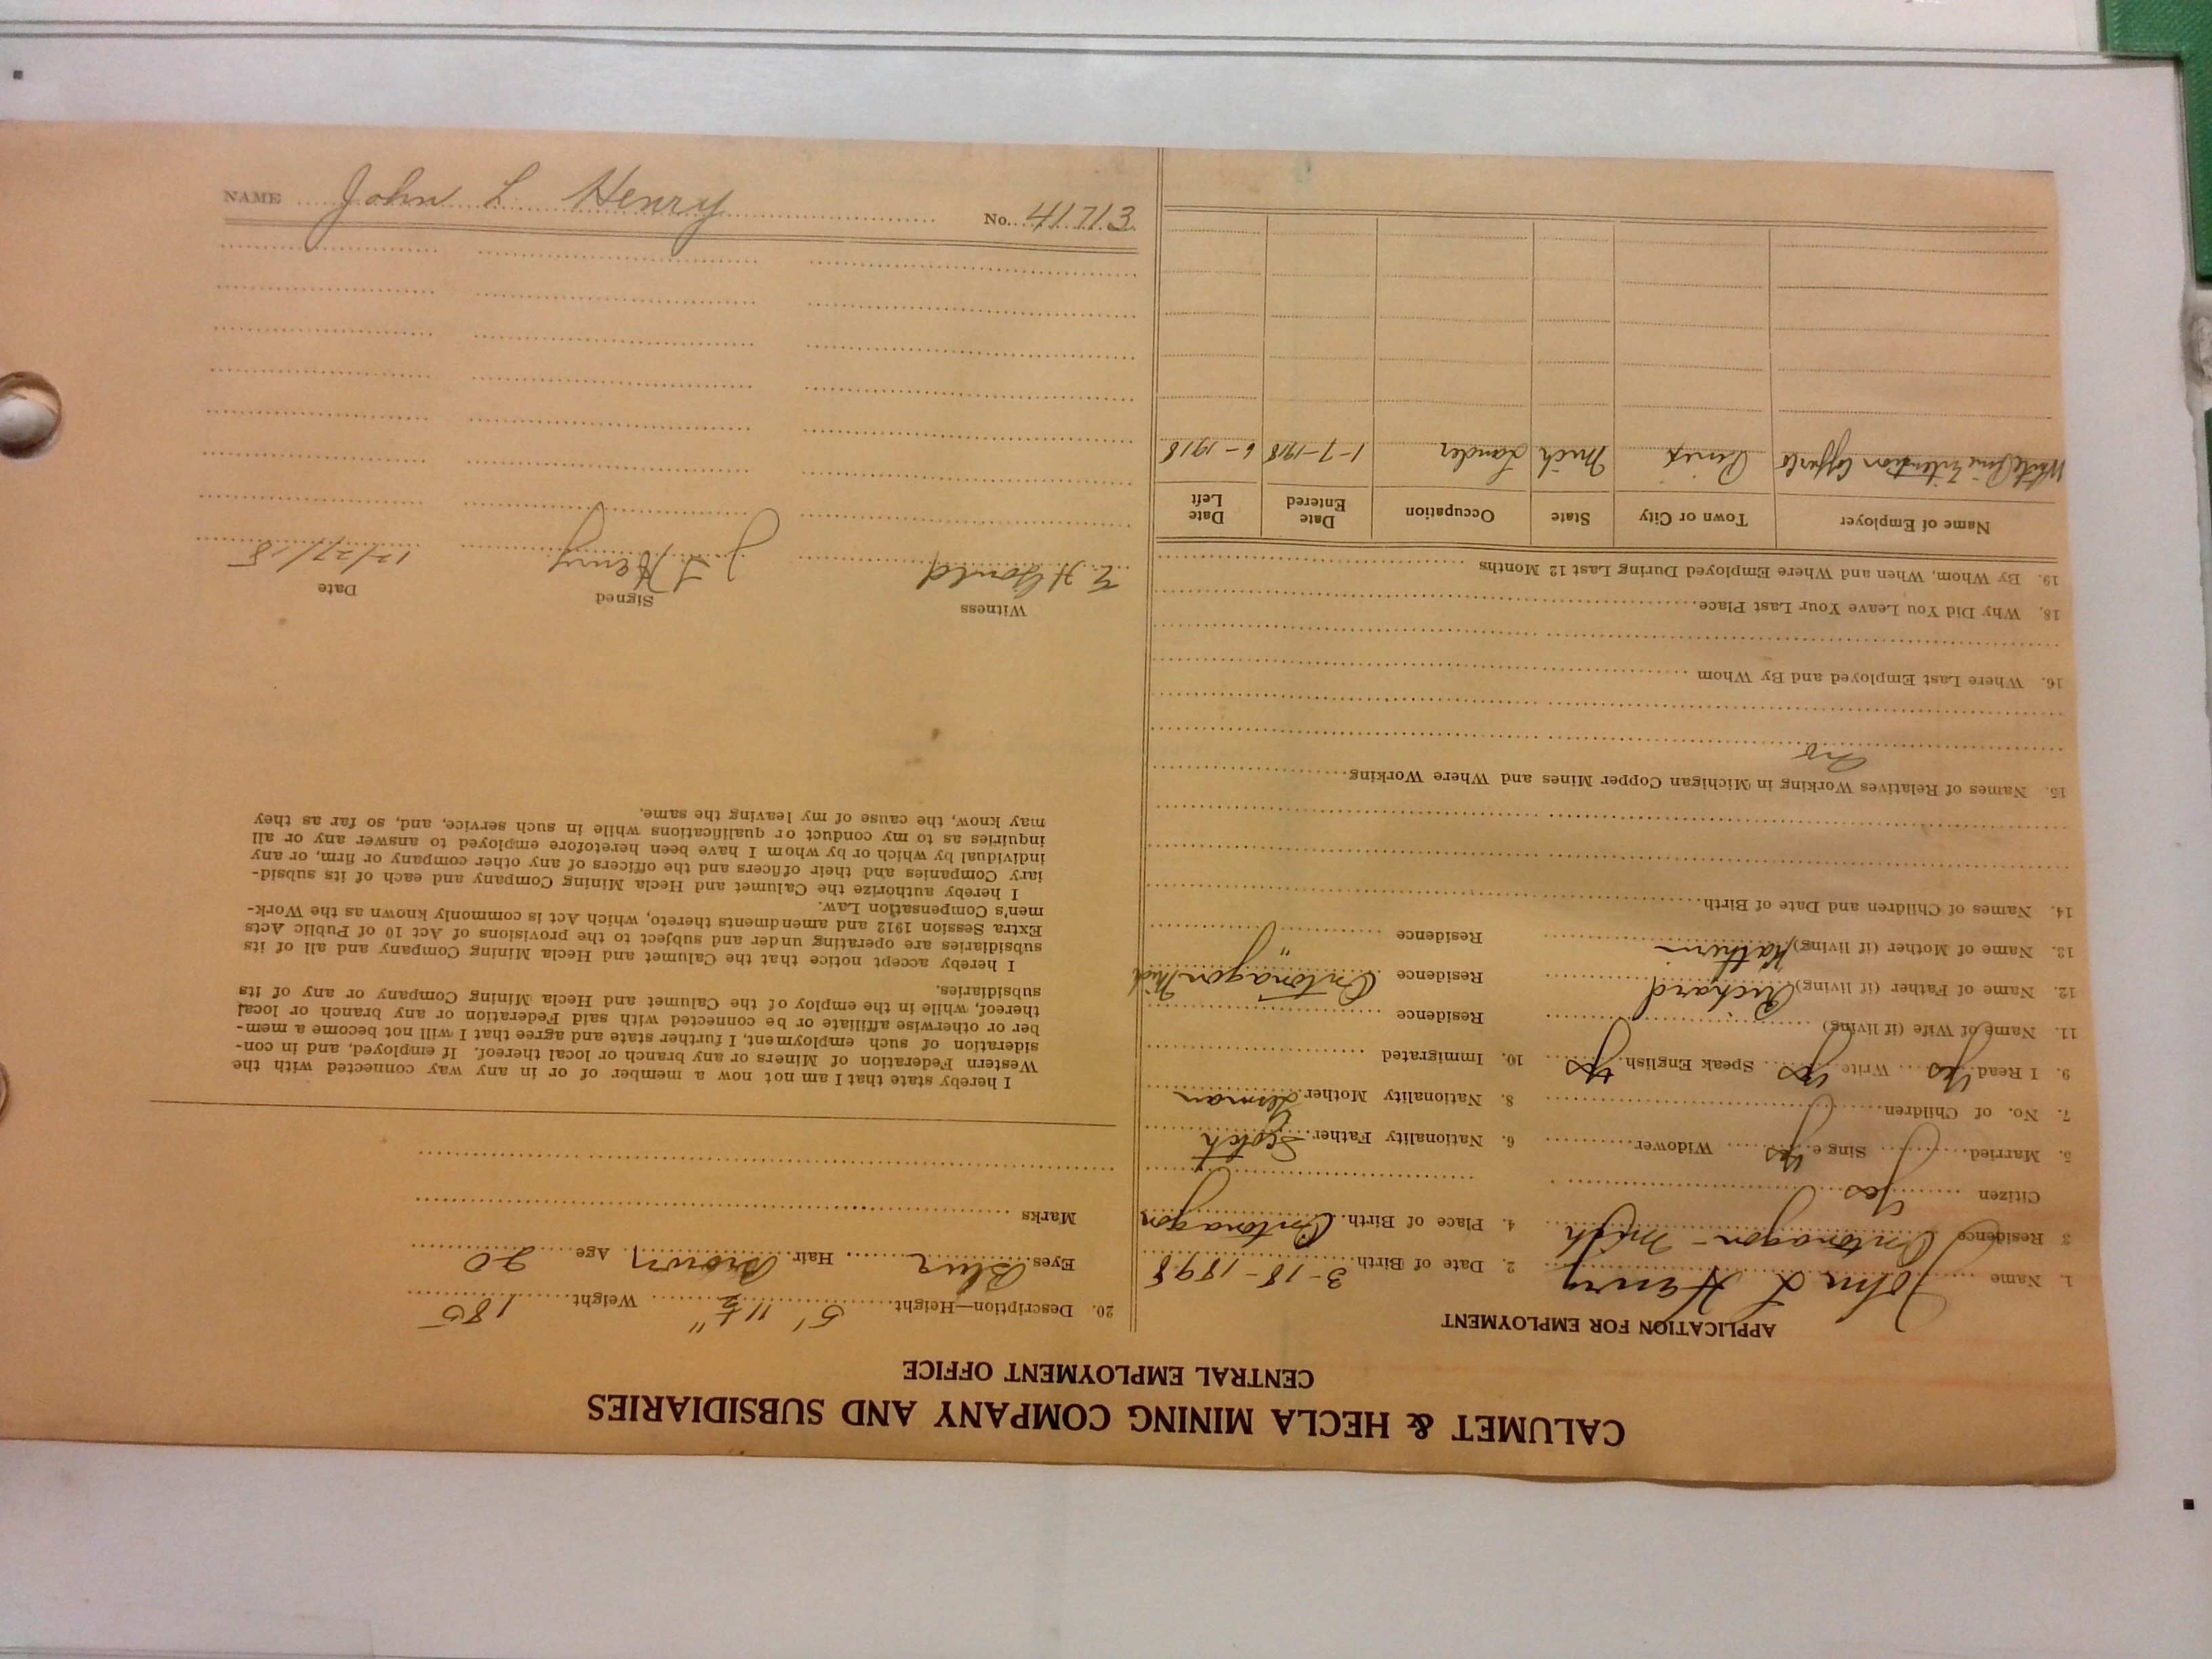 CALUMET & HECLA MINING COMPANY AND SUBSIDIARIES
CENTRAL EMPLOYMENT OFFICE
APPLICATION FOR EMPLOYMENT
1. Name John L Henry 2. Date of Birth 3-18-1898
3 Residence Ontonagon - Mich 4. Place of Birth Ontonagon
Citizen Yes
5. Married Single Yes Widower 6. Nationality Father Scotch
7. No. of Children 8. Nationality Mother German
9. I Read Yes Write Yes Speak English Yes 10. Immigrated
11. Name of Wife (if living) Residence
12. Name of Father (if living) Richard Residence Ontonagon Mich
13. Name of Mother (if living) Residence "
14. Names of Children and Date of Birth
15. Names of Relatives Working in Michigan Copper Mines and Where Working
no
16. Where Last Employed and By Whom
18. Why Did You Leave Your Last Place
19. By Whom, When and Where Employed During Last 12 Months
Name of Employer Town or City State Occupation Date Entered Date Left
White Pine Extension Copper Co Mich 1-7-1918 6-1918
20. Description—Height 5' 11½" Weight 185
Eyes Blue Hair Brown Age 20
Marks
I hereby state that I am not now a member of or in any way connected with the
Western Federation of Miners or any branch or local thereof. If employed, and in con-
sideration of such employment, I further state and agree that I will not become a mem-
ber or otherwise affiliate or be connected with said Federation or any branch or local
thereof, while in the employ of the Calumet and Hecla Mining Company or any of its
subsidiaries.
I hereby accept notice that the Calumet and Hecla Mining Company and all of its
subsidiaries are operating under and subject to the provisions of Act 10 of Public Acts
Extra Session 1912 and amendments thereto, which Act is commonly known as the Work-
men's Compensation Law.
I hereby authorize the Calumet and Hecla Mining Company and each of its subsid-
iary Companies and their officers and the officers of any other company or firm, or any
individual by which or by whom I have been heretofore employed to answer any or all
inquiries as to my conduct or qualifications while in such service, and, so far as they
may know, the cause of my leaving the same.
Witness Signed Date
H Gould J. L. Henry 12/27/18
NAME John L Henry No. 41713